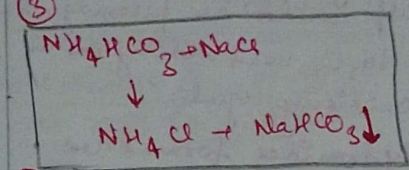 3
NH₄HCO₃ + NaCl
↓
NH₄Cl + NaHCO₃↓